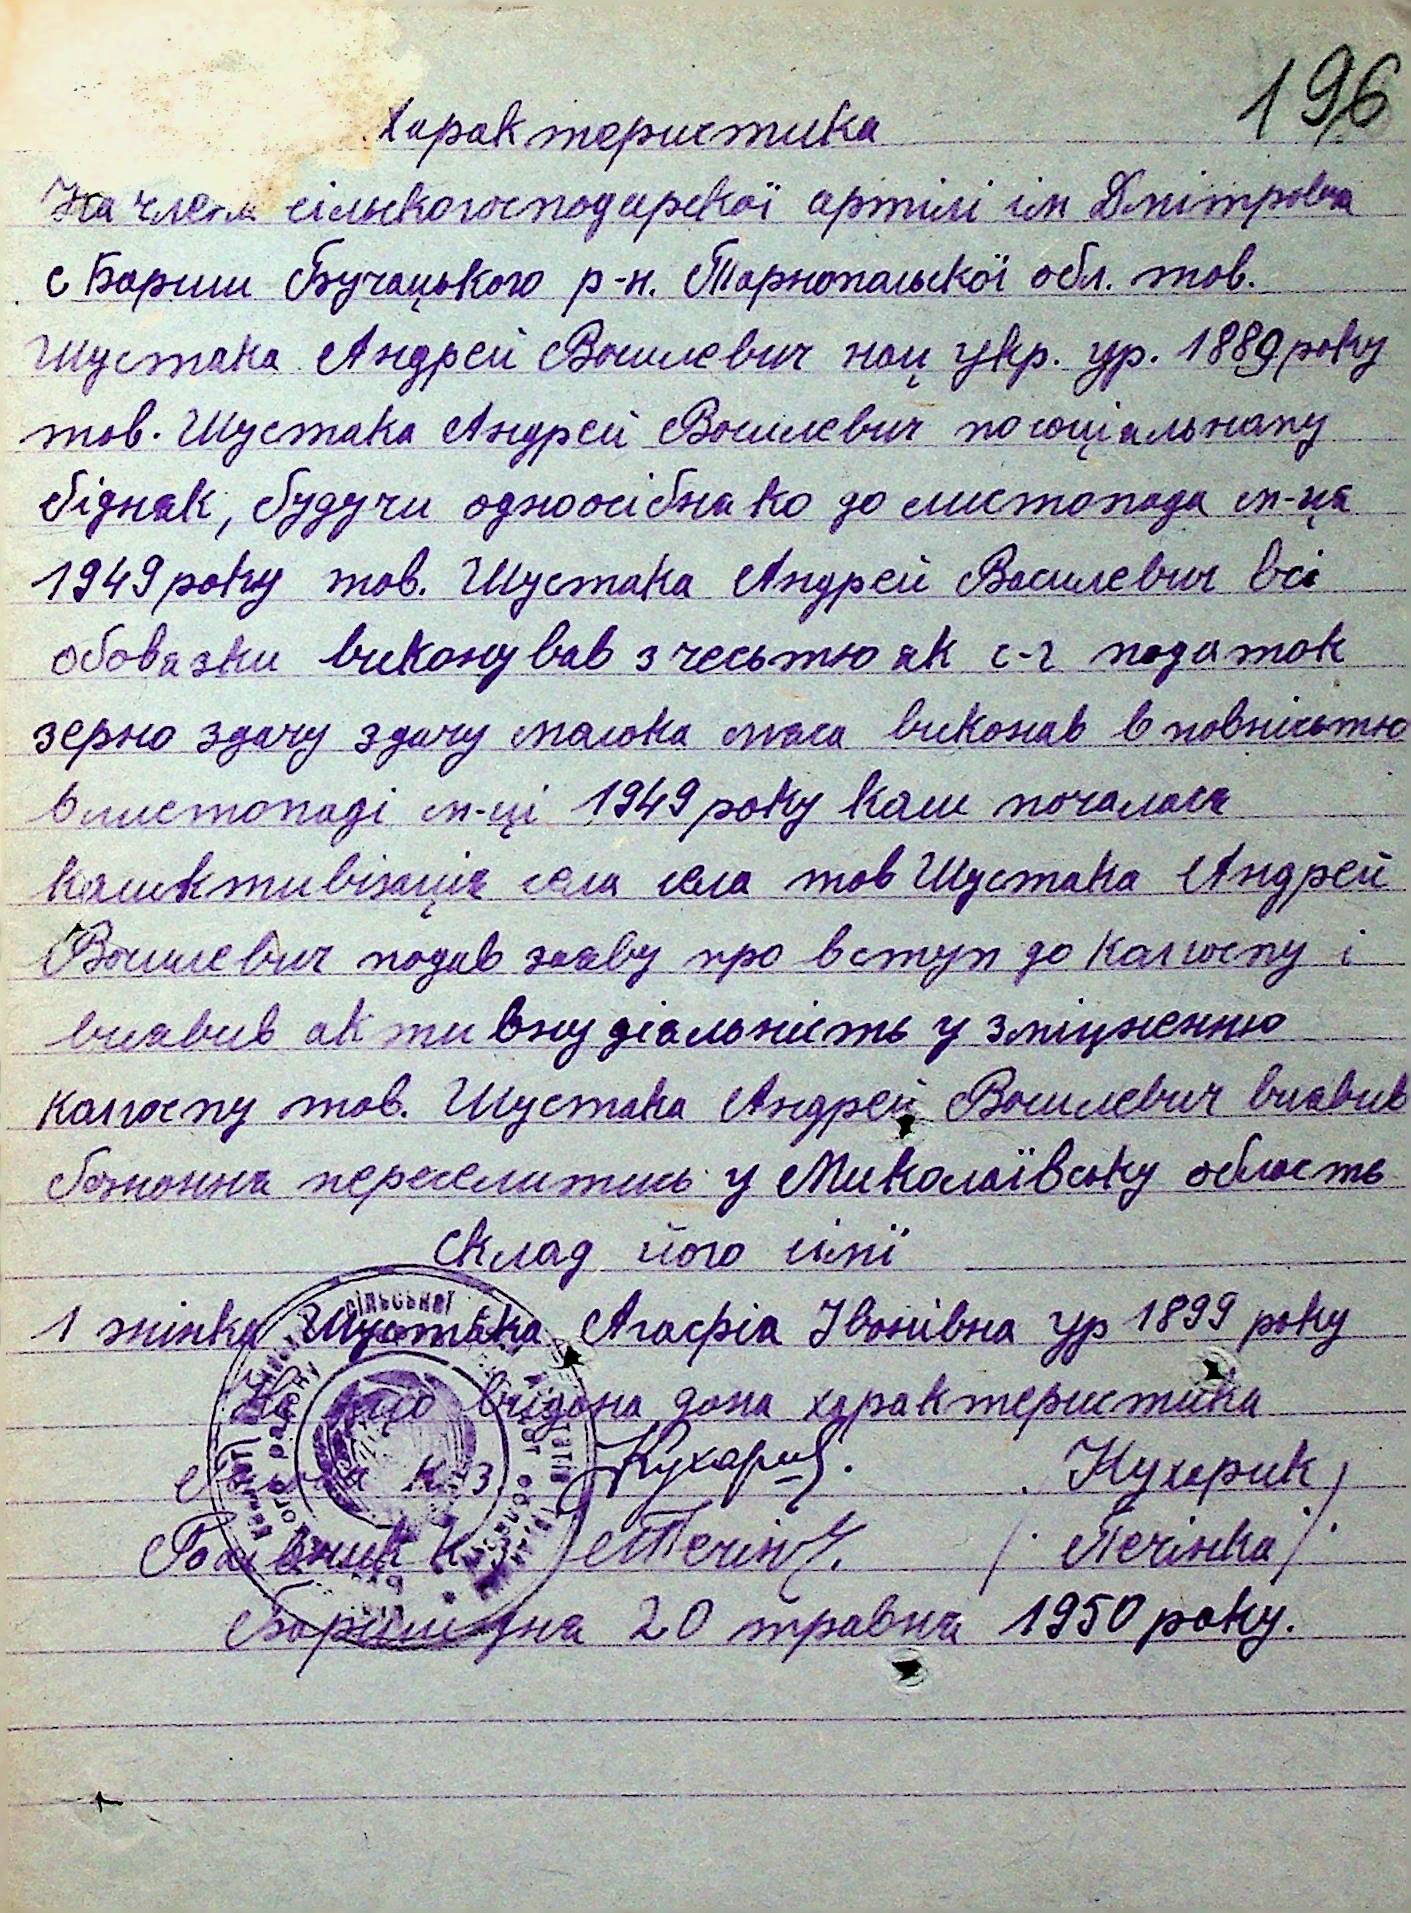 196
Характеристика
На члена сільскогосподарскої артілі ім Дмітрова
с Бариш Бучацького р-н. Тарнопальскої обл. тов.
Шустака Андрей Василевич нац укр. ур. 1889 року
тов. Шустака Андрей Василевич по соціальнаму
бідняк, будучи одноосібнако до листопада м-ця
1949 року тов. Шустака Андрей Василевич всі
обовязки виконував з чесьтю як с-г податок
зерно здачу здачу малока мяса виконав в повнісьтю
в листопаді м-ці 1949 року кали почалася
каликтивізація села села тов Шустака Андрей
Василевич подав заяву про вступ до калгоспу і
виявив активну діяльність у зміцненню
калгоспу тов. Шустака Андрей Василевич виявив
бажання переселитись у Миколаївську область
склад його сімї
1 жінка Шустака Агафія Іванівна ур 1899 року
На що видана дана характеристика
Галова к-з Кухарик. / Кухарик /
Рахівник к-з Печінка. / Печінка /.
Бариш дня 20 травня 1950 року.
сільської